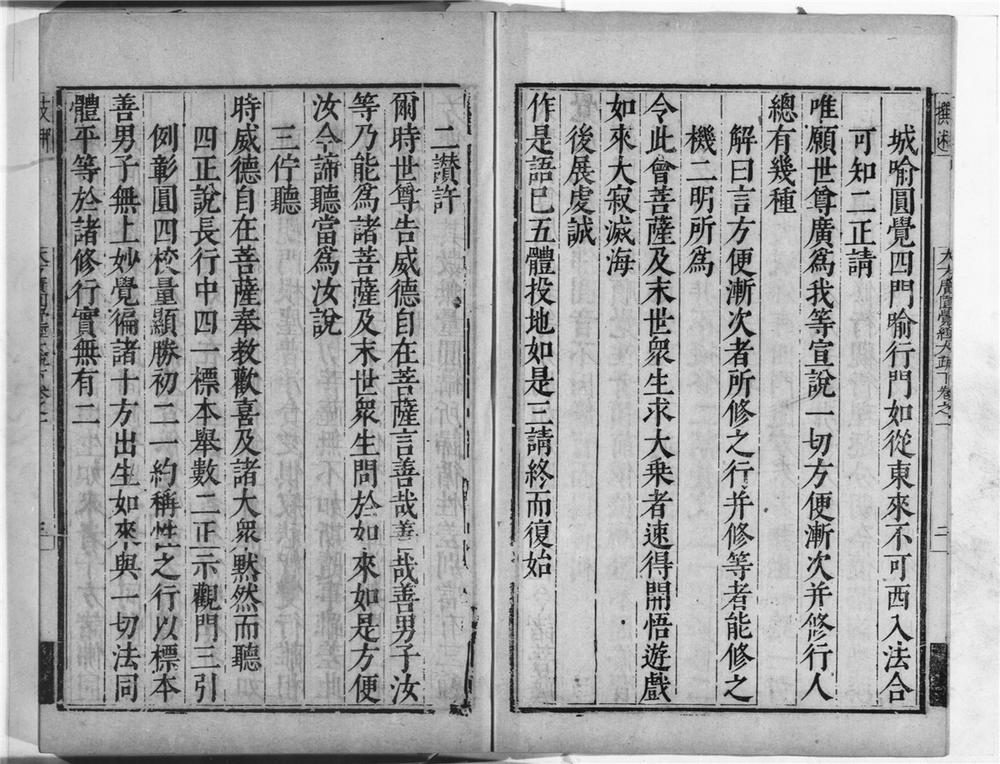 城喻圓覺四門喻行門如從東來不可西入法合
可知二正請
唯願世尊廣爲我等宣說一切方便漸次并修行人
總有幾種
解曰言方便漸次者所修之行并修等者能修之
機二明所爲
令此會菩薩及末世衆生求大乘者速得開悟遊戲
如來大寂滅海
後展虔誠
作是語已五體投地如是三請終而復始
二讚許
爾時世尊告威德自在菩薩言善哉善哉善男子汝
等乃能爲諸菩薩及末世衆生問於如來如是方便
汝今諦聽當爲汝說
三佇聽
時威德自在菩薩奉教歡喜及諸大衆默然而聽
四正說長行中四一標本舉數二正示觀門三引
例彰圓四校量顯勝初二一約稱性之行以標本
善男子無上妙覺徧諸十方出生如來與一切法同
體平等於諸修行實無有二